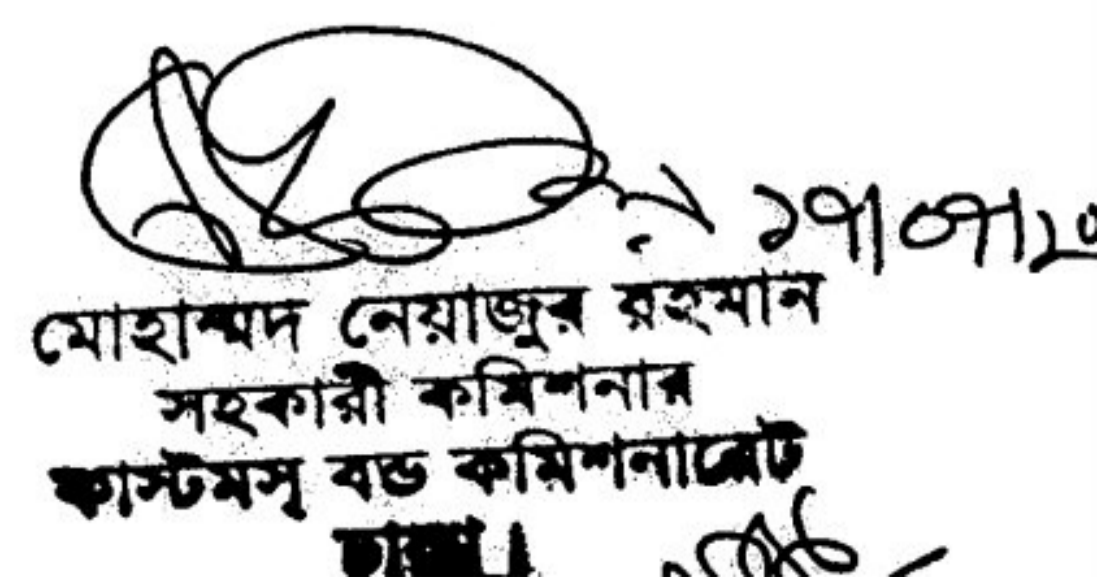 ১৭/০৭/২০
মোহাম্মদ নেয়াজুর রহমান
সহকারী কমিশনার
কাস্টমস্ বন্ড কমিশনারেট
ঢাকা।